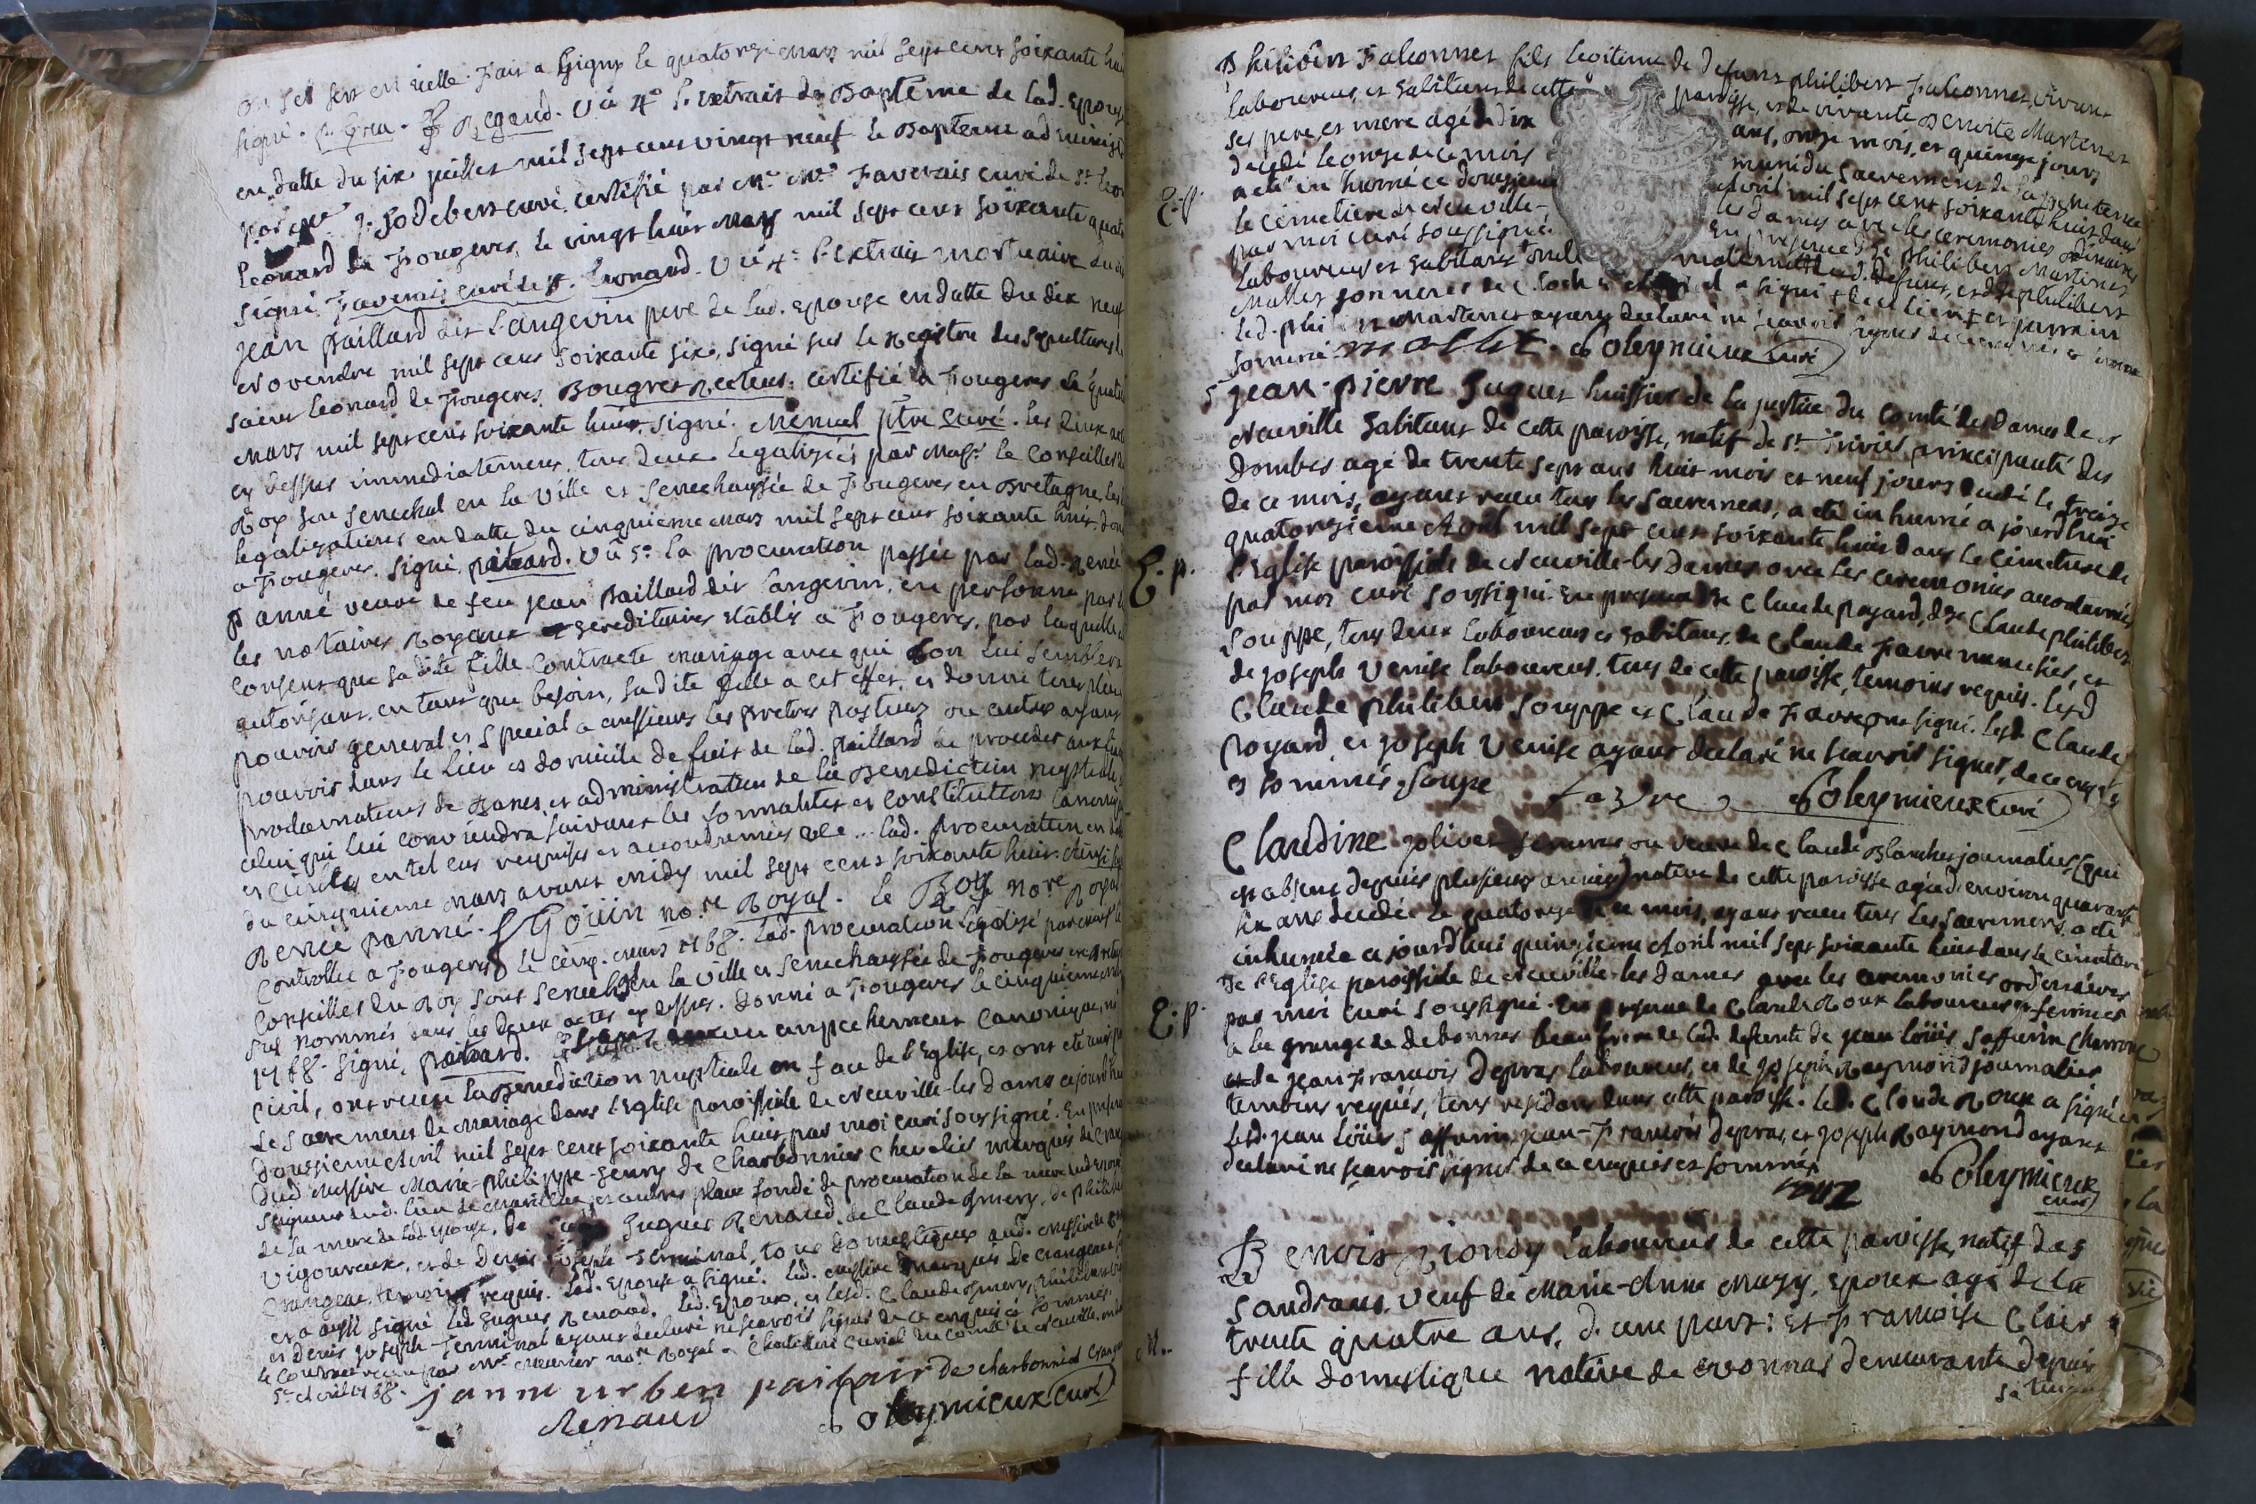 sert en icelle. Fait a Gigny le quatorze Mars mil sept cent soixante huit
signé. Vû 4° l'extrait de Bapteme de lad. Epouse
en datte du six juillet mil sept cent vingt neuf le Bapteme administré
curé. certifié par Mre Faverais curé de St. Leon
Leonard de Fougeres, le vingt huit Mars mil sept cent soixante quatre
signé. Faverais curé de St. Leonard. Vû 4° l'Extrait mortuaire dud
jean Paillard dit L'angevin pere de lad. Epouse en datte du dix neuf
Novembre mil sept cent soixante six, signé sur le Registre des sepultures de
saint Leonard de Fougeres. Bougret Recteur. certifié a Fougeres le quatre
Mars mil sept cent soixante huit, signé. Menuel ptre curé. les deux actes
cy dessus immediatement, tous deux legalisés par Monsr. le Conseiller du
Roy son senechal en la Ville et senechaussée de Fougeres en Bretagne, les
legalisations en datte du cinquieme Mars mil sept cent soixante huit, donné
a Fougeres. signé, patard. Vû 5° la procuration passée par lad. Renée
Panné veuve de feu jean Paillard dit Langevin, en personne par
les notaires Royaux et hereditaires etablis a Fougeres, par laquelle
consent que sadite fille contracte mariage avec qui bon lui semblera
autorisant, en tant que besoin, sadite fille a cet effet, et donne tous plein
pouvoir general et special a messieurs les pretres pasteurs ou autres ayant
pouvoir dans le lieu et domicile de fait de lad. Paillard de proceder aux
proclamations de Banes, et administration de la Benediction nuptiale
celui qui lui conviendra suivant les formalités et constitutions canoniques
et civiles en tel cas requises et accoutumées lad. procuration en datte
du cinquieme Mars avant midy mil sept cent soixante huit. Ainsi signé
Renée panné. Gouin nore Royal. Le Roy nore Royal
Controllé a Fougeres le cinq. Mars 1768. lad. procuration legalisé par
Conseiller du Roy sous senechal en la ville et senechaussée de Fougeres en Bretagne
sus nommés dans les deux actes cy dessus. donné a Fougeres le cinquieme
1768. signé, patard. sans aucun empechement canonique, ni
civil, ont reçu la Benediction nuptiale en face de l'Eglise, et ont eté unis par
le sacrement de Mariage dans l'Eglise paroissiale de Neuville-les Dames cejourd'hui
douzieme Avril mil sept cent soixante huit par moi curé soussigné. En presence
dud. Messire Marie-philippe-henry de Charbonnier Chevalier marquis de
seigneur dud. lieu de et autres place fondé de procuration de la mere
de la mere de lad. Epouse, de Hugues Renaud, de Claude
Vigoureux, et de Denis joseph Terminal, tous domestiques aud. Messire
Crangeac, temoins requis. lad. Epouse a signé. led. Messire Marquis de Crangeac
et a aussi signé led. Hugues Renaud. led. Epoux, et lesd. Claude
et Denis joseph Terminal ayant declaré ne scavoir signer de ce enquis et sommés.
le contrat reçu par Mre nore Royal a Chatillon curial du comté de Neuville
5e Avril 1768.
janne urben paillair de charbonnier Crangeac
Renaud Boleymieux curé
Philibert Falconnet fils legitime de defunt philibert Falconnet, vivant
laboureur, et habitant de cette paroisse, et de vivante Benoite Martinet
ses pere et mere agé de dix ans, onze mois, et quinze jours
decedé le onze de ce mois muni du sacrement de la penitence
a eté inhumé ce douzieme Avril mil sept cent soixante huit dans
le cimetiere de Neuville-les dames avec les ceremonies ordinaires
par moi curé soussigné. En presence de philibert Martinet
laboureur et habitant oncle maternel dud. defunt, et de philibert
Mallet sonneur de cloches a signé
led. philibert Martinet ayant declaré ne scavoir signer de ce enquis et
sommé. mallet. Boleymieux curé
E. p.
jean-pierre huguet huissier de la justice du Comté des Dames de
Neuville habitant de cette paroisse, natif de St. Trivier, principauté des
Dombes agé de trente sept ans huit mois et neuf jours decedé le treize
de ce mois, ayant reçu tous les sacremens, a eté inhumé a jourd'hui
quatorzieme Avril mil sept cent soixante huit dans le Cimetiere de
l'Eglise paroissiale de Neuville-les Dames avec les ceremonies accoutumées
par moi curé soussigné. En presence de Claude poyard, de Claude philibert
souppe, tous deux laboureurs et habitans, de Claude Favre menusier, et
de joseph Venise laboureur, tous de cette paroisse, temoins requis. Lesd
Claude philibert souppe et Claude Favre ont signé. Lesd. Claude
poyard et joseph Venise ayant declaré ne scavoir signer, de ce enquis
et sommés. soupe favre Boleymieux curé
E. p.
Claudine jolivet femme ou veuve de Claude Blanchet journalier (qui
est absent depuis plusieurs années) native de cette paroisse agée d'environ quarante
six ans decedée le quatorze de ce mois, ayant reçu tous les sacremens, a eté
inhumée ce jourd'hui quinzieme Avril mil sept soixante huit dans le cimetiere
de l'Eglise paroissiale de Neuville-les Dames avec les ceremonies ordinaires
par moi curé soussigné. En presence de Claude Roux laboureur et fermier
a la grange de debonnes beau frere de lad. defunte de jean loüis saffurin Charron
et de jean François Depras laboureur, et de joseph Raymond journalier
temoins requis, tous residans dans cette paroisse. Led. Claude Roux a signé et
lesd. jean loüis saffurin, jean-François Depras, et joseph Raymond ayant
declaré ne scavoir signer de ce enquis et sommés.
rouz Boleymieux
curé
E. p.
Benoit Riondy laboureur de cette paroisse, natif des
sandrans, veuf de Marie-Anne Mazy, Epoux agé de
trente quatre ans, d'une part: Et Françoise Clair
fille domestique native de Vonnas demeurante depuis
M.